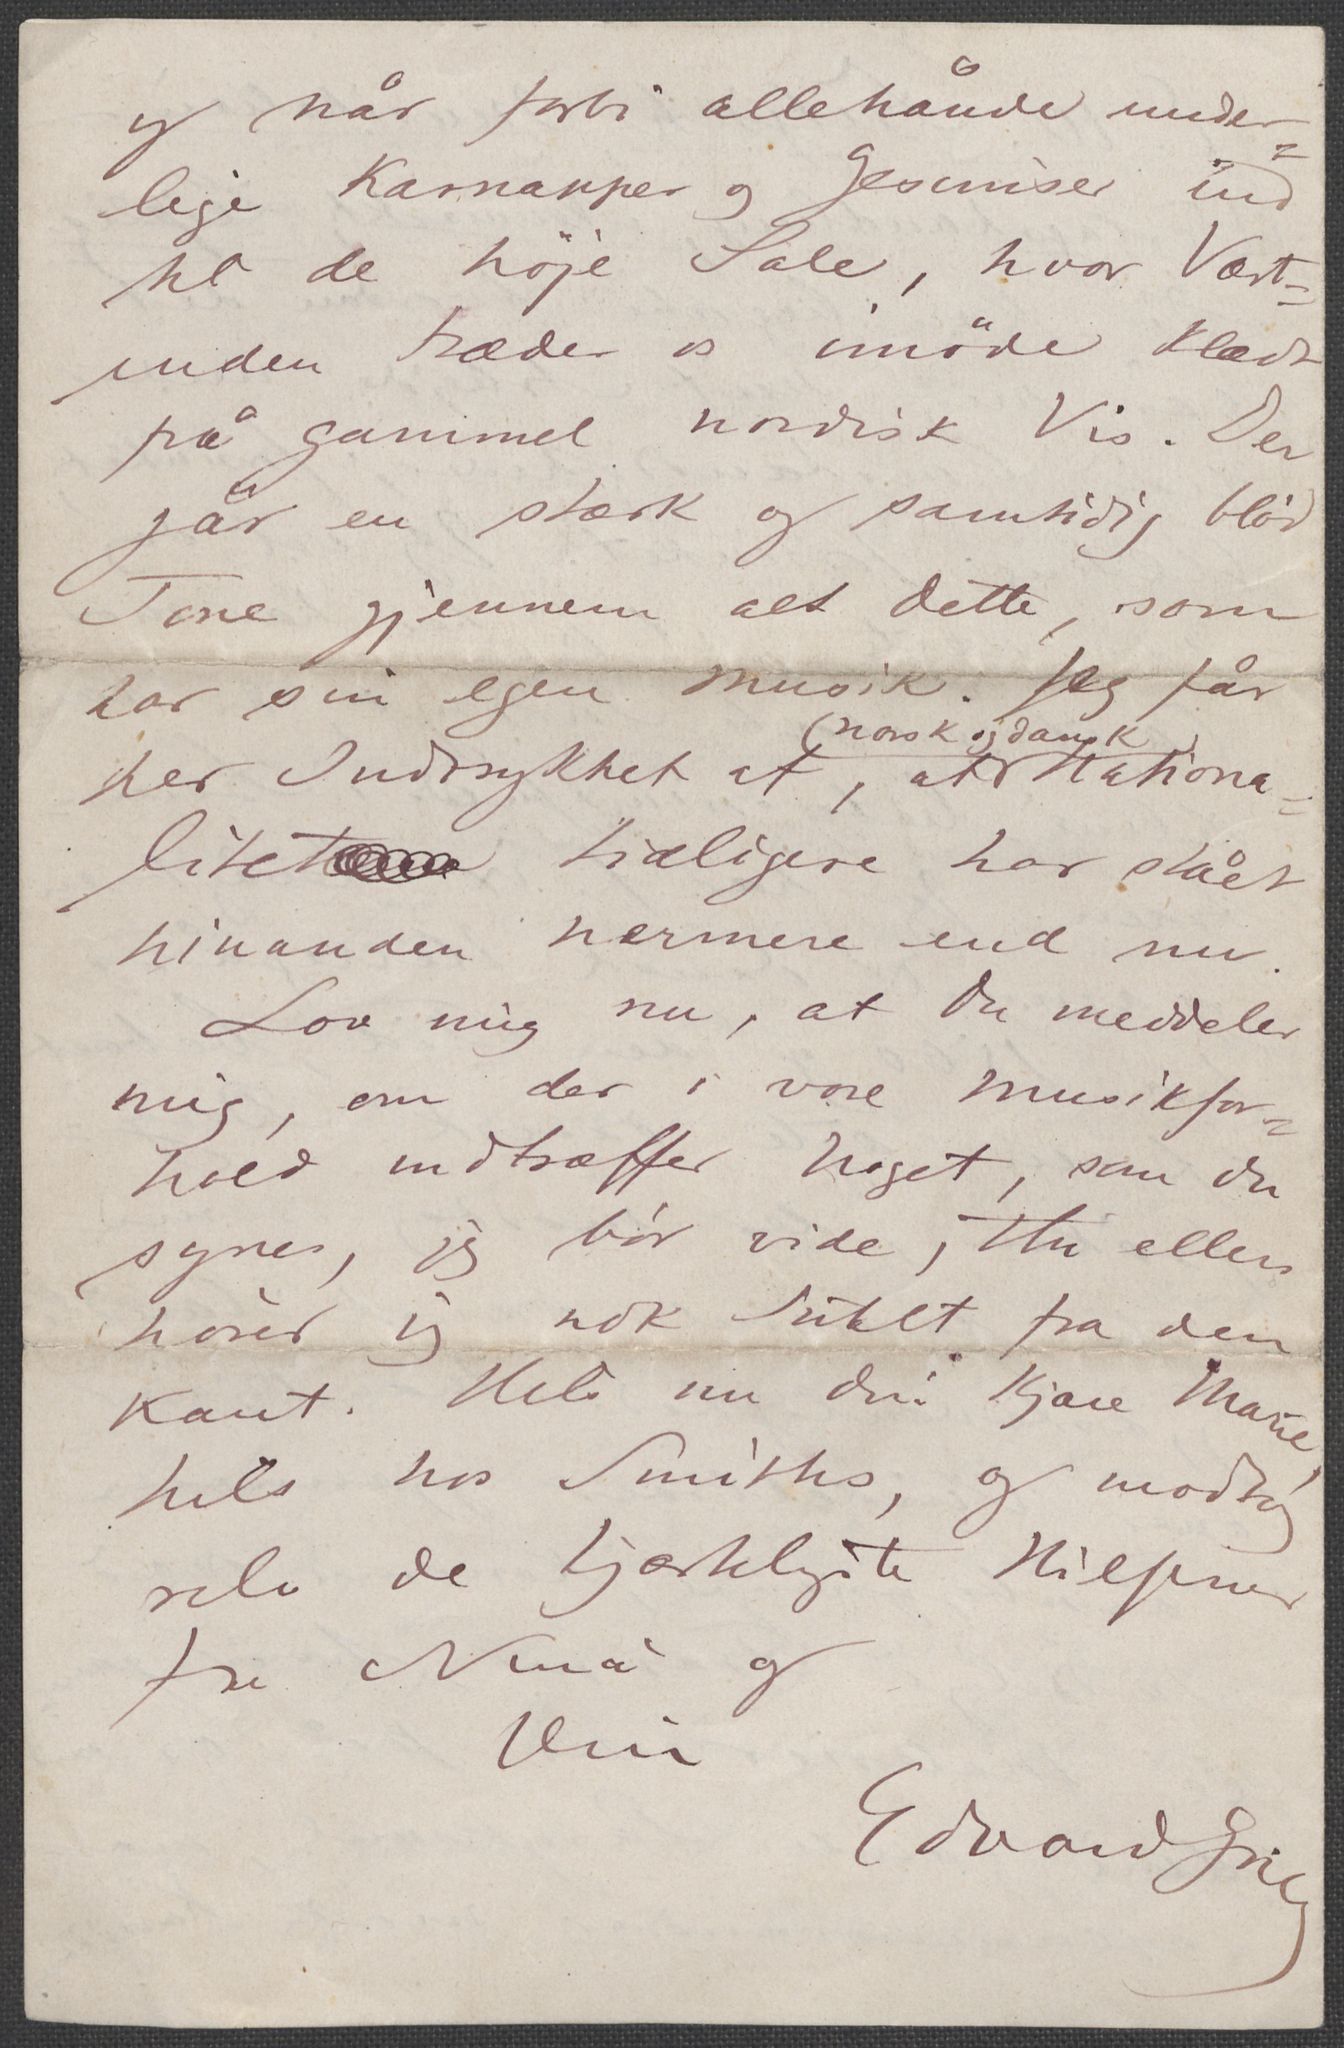 og når forbi allehånde under=
lige Karnapper og Gesimser ind
til de höje Sale, hvor Vært=
inden træder os imöde klædt
på gammel nordisk Vis. Der
går en stærk og samtidig blöd
Tone gjennem alt dette, som
har sin egen Musik. Jeg får
(norsk og dansk)
her Indtrykket af, at Nationa=
litet tidligere har stået
hinanden nærmere end nu.
Lov mig nu, at Du meddeler
mig, om der i vore Musikfor=
hold indtræffer Noget, som Du
synes, jeg bör vide, thi ellers
hörer jeg nok Intet fra den
Kant. Hils nu din kjære Marie,
hils hos Smiths, og modtag
selv de hjerteligste Hilsener
fra Nina og
Din
Edvard Grieg